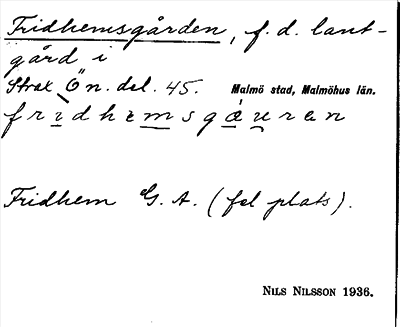 Fridhemsgården, f. d. lant-
gård i
Strax Ö n. del. 45. Malmö stad, Malmöhus län.
fridhemsgåuren
Fridhem G. A. (fel plats).
NILS NILSSON 1936.